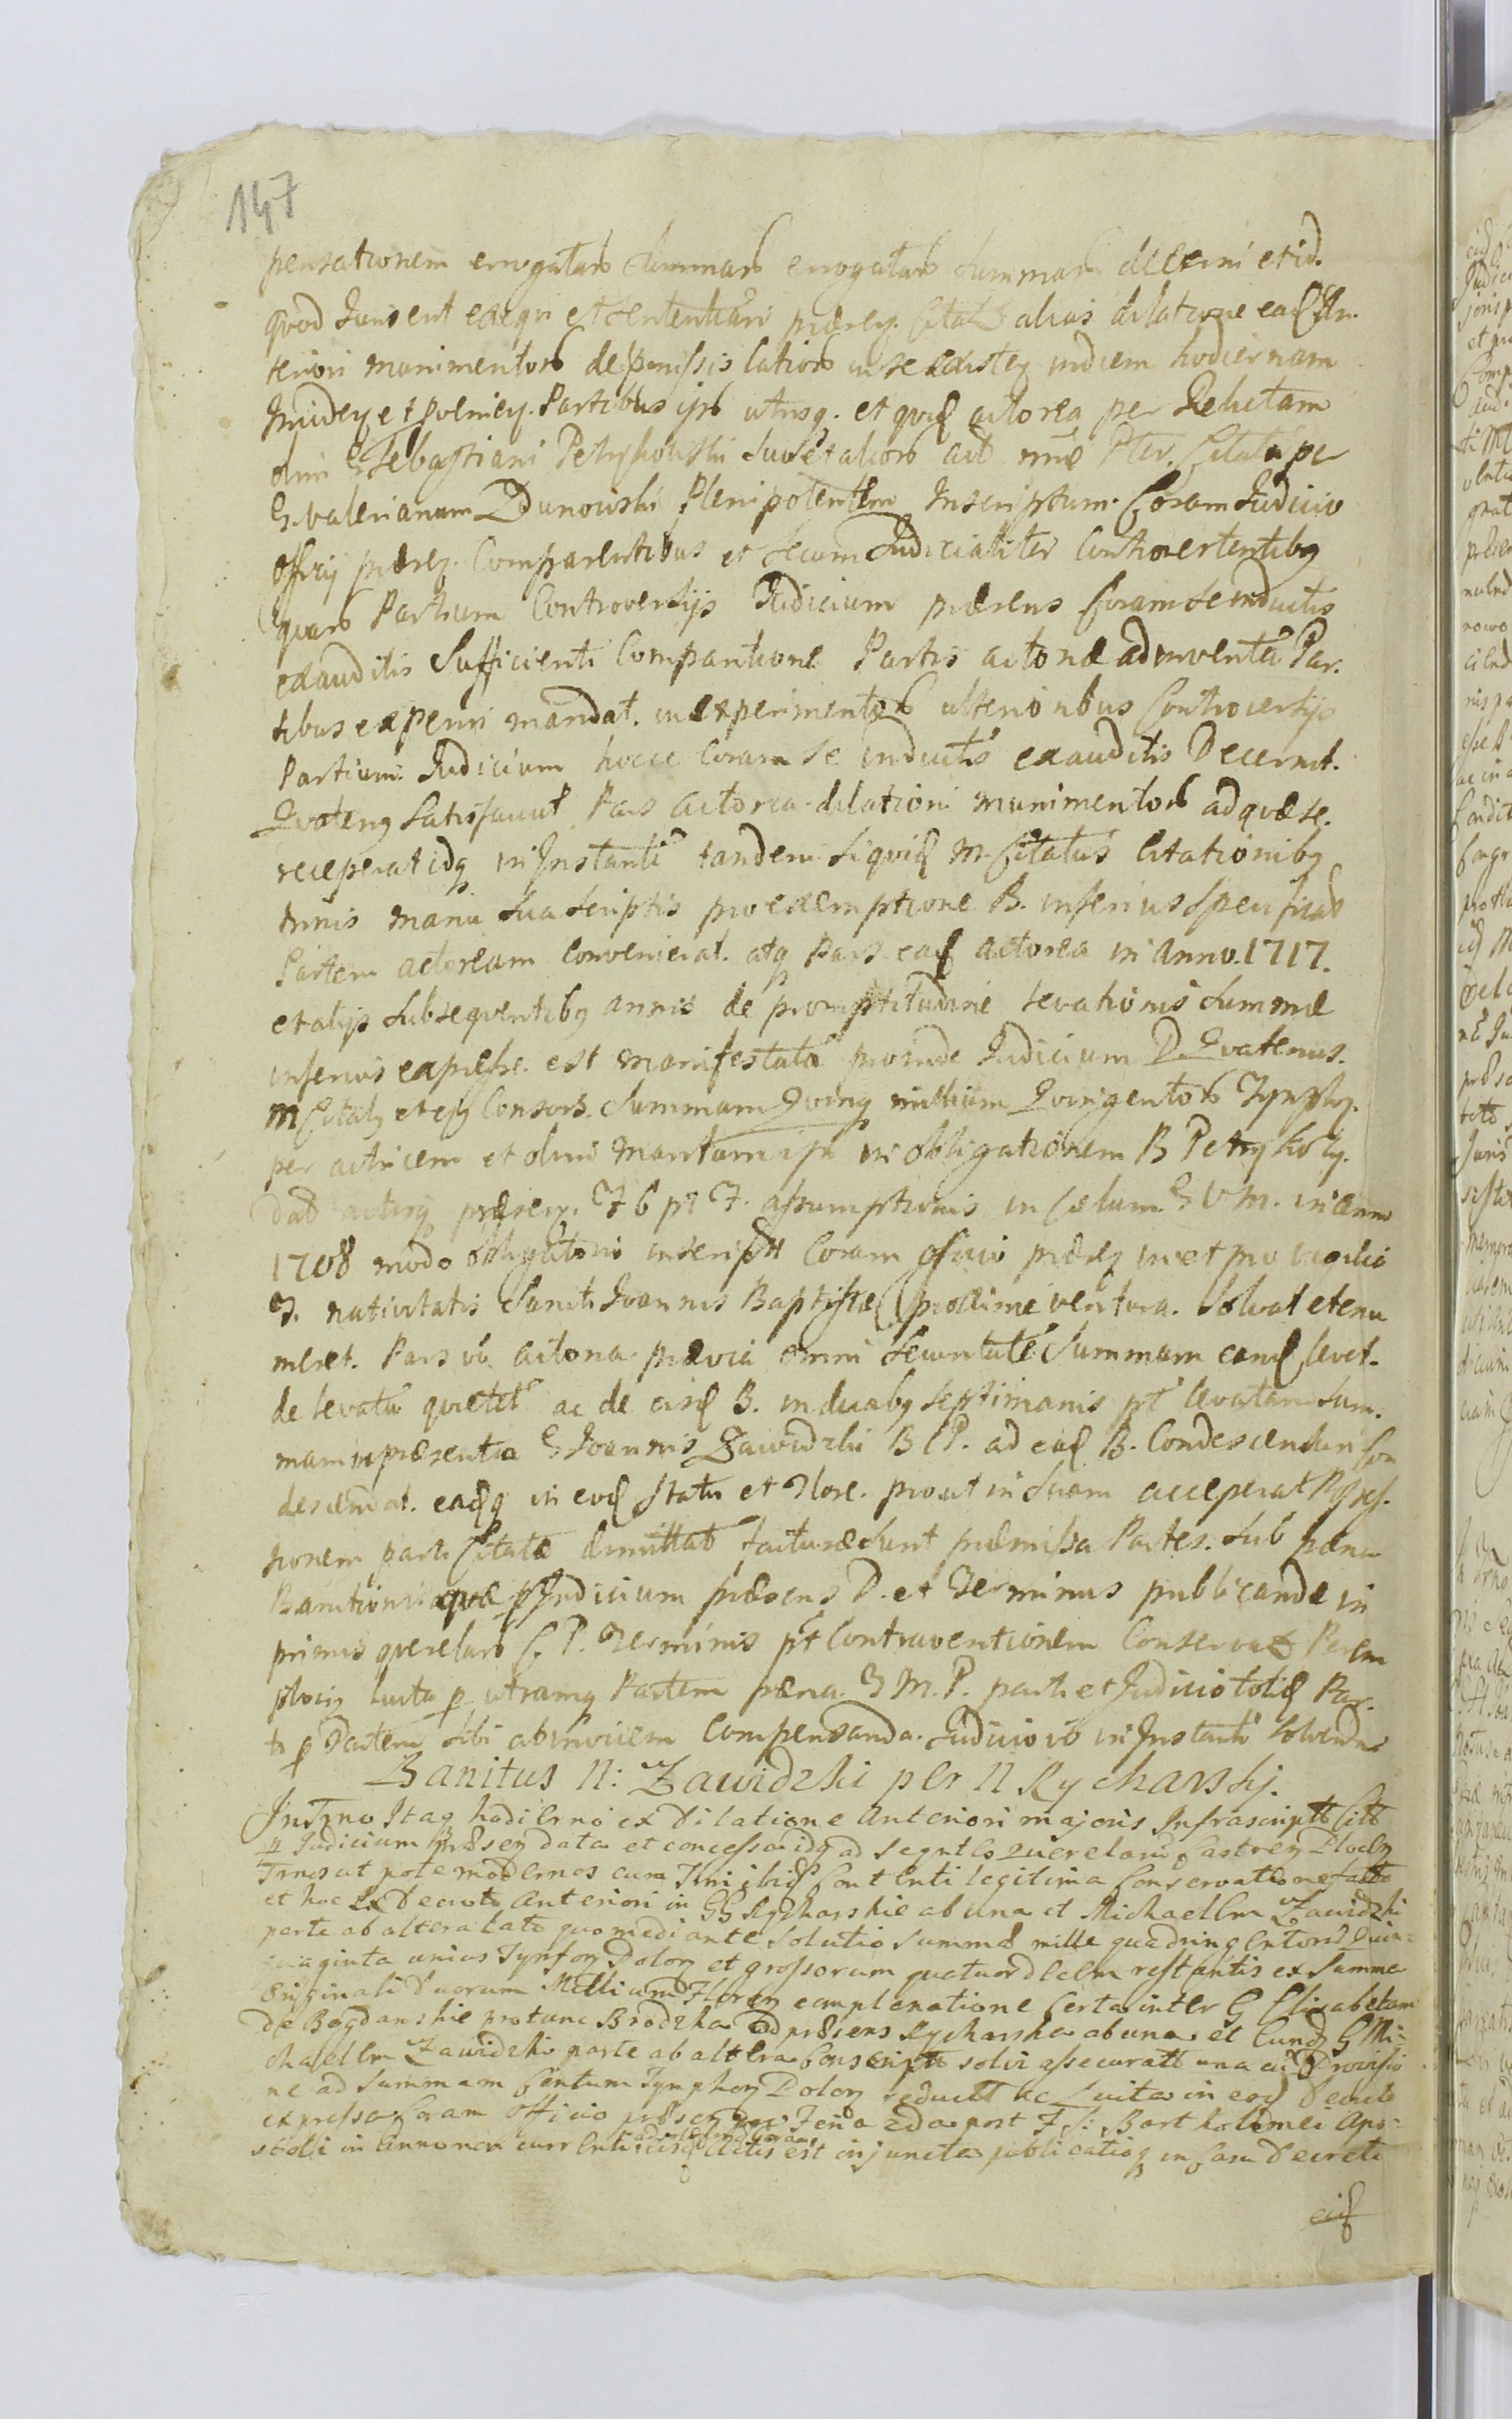 147
pensationem errogatar Summar errogatar Summar decerni et id.
quod Juris erit exequi et sententiari præsen. Citat alias dilatione ead An-
teriori munimentor depromissis lation in se existen in diem hodiernam
Inciden et solenien. Partibus ipis utrisq. et quid actorea per Relictam
olim G Sebastiani Petrykowski suo et alior act nne Pter. Citata per
G. Valerianum Zdunowski Plenipotentem Inscriptum. Coram Judicio
Officij præsen. Comparentibus et secum Judicialiter Controvertentibq
quar Partium Controversijs Judicium præsens Coram se inductis
exauditis Sufficienti Comparitione Partis actoreæ adinventa Par-
tibus experiri mandat. in experimentor ulterioribus Controversijs
Partium Judicium hocce Coram se inductis exauditis Decernit.
Quatenq satisfaciat Pars actorea dilationi munimentor ad quæ se.
receperat idq in Instanti tandem siquid M. Citatus Citationibq
trinis manu sua scriptis pro exemptione B. inferius specificat
Partem actoream convenierat. atq Pars ead actorea in Anno. 1717.
et alijs subsequentibq annis de promptitudine levationis Summæ
inferius expresse. est manifestata proinde Judicium D. Quatenus.
M Citatq et ejq Consors. Summam Quinq millium Quingentor Tynphor.
per actricem et olim Maritum ipi in obligationem B Petrykozy.
Dat actisq præsen. F 6 pt F. assumptionis in Cælum G V M. in Anno
1708 modo obligatorio inscript Coram officio præsen in et pro vigilia
F. nativitatis Sancti Joannis Baptistæ proxime ventura. Solvat et enu
meret. Pars vo actorea prævia omni securitate Summam eand levet.
de levata quietet ac de eisd B. in duabq septimanis pt levatam Sum-
mam in præsentia G Joannis Zawidzki B C P. ad ead B. Condescensuri Con
descendat. eadq in eod statu et Flore. prout in suam acceperat Posses-
sionem parti Citatæ dimittat facturæ sunt præmissa Partes. sub pæna
Banitionis quæ p Judicium præsens D. et Terminus publicandæ in
primis querelar C. P. Terminis pt Contraventionem Conservat Perem
ptorie luita p utramq Partem pæna. G M. P. parti et Judicio totid Par-
ti p Partem sibi abinvicem Compensanda. Judicio vo in Instanti solvenda
Banitus N: Zawidzki per N Rycharskj.
In Trno Itaq hodierno ex Dilatione Anteriori majoris Infrascriptt Citt
p Judicium præsen data et concessa idq ad Segntes querelar Castren Plocen
Trnos ut pote modernos cum Trni ibid Contenti legitima Conservatione facto
et hoc Ex Decreto Anteriori in GG Rycharskie ab una et Michaelem Zawidzki
parte ab altera lato quo mediante Solutio Summæ mille quadringentor Quin-
quaginta unius Tynfon Dolon et grossorum quatuordecem restantis ex Summa
Originali Duorum Millium Floren complenatione Certa inter G Elisabetam
De Bogdanskie protunc Brodzka ad præsens Rycharska ab una et Eund G Mi-
chaelem Zawidzki parte ab altera Conscript solvi assecurati una cu Provisio
ne ad Summam Centum Tynphon Dolon reduct ac Luita in eod Decreto
expressa Coram Officio præsen pro Feria 2da post F S: Bartholomei Apo-
stoli in Anno currenti eisdq Actis est injuncta publicatioq in Casu Decreti
eid